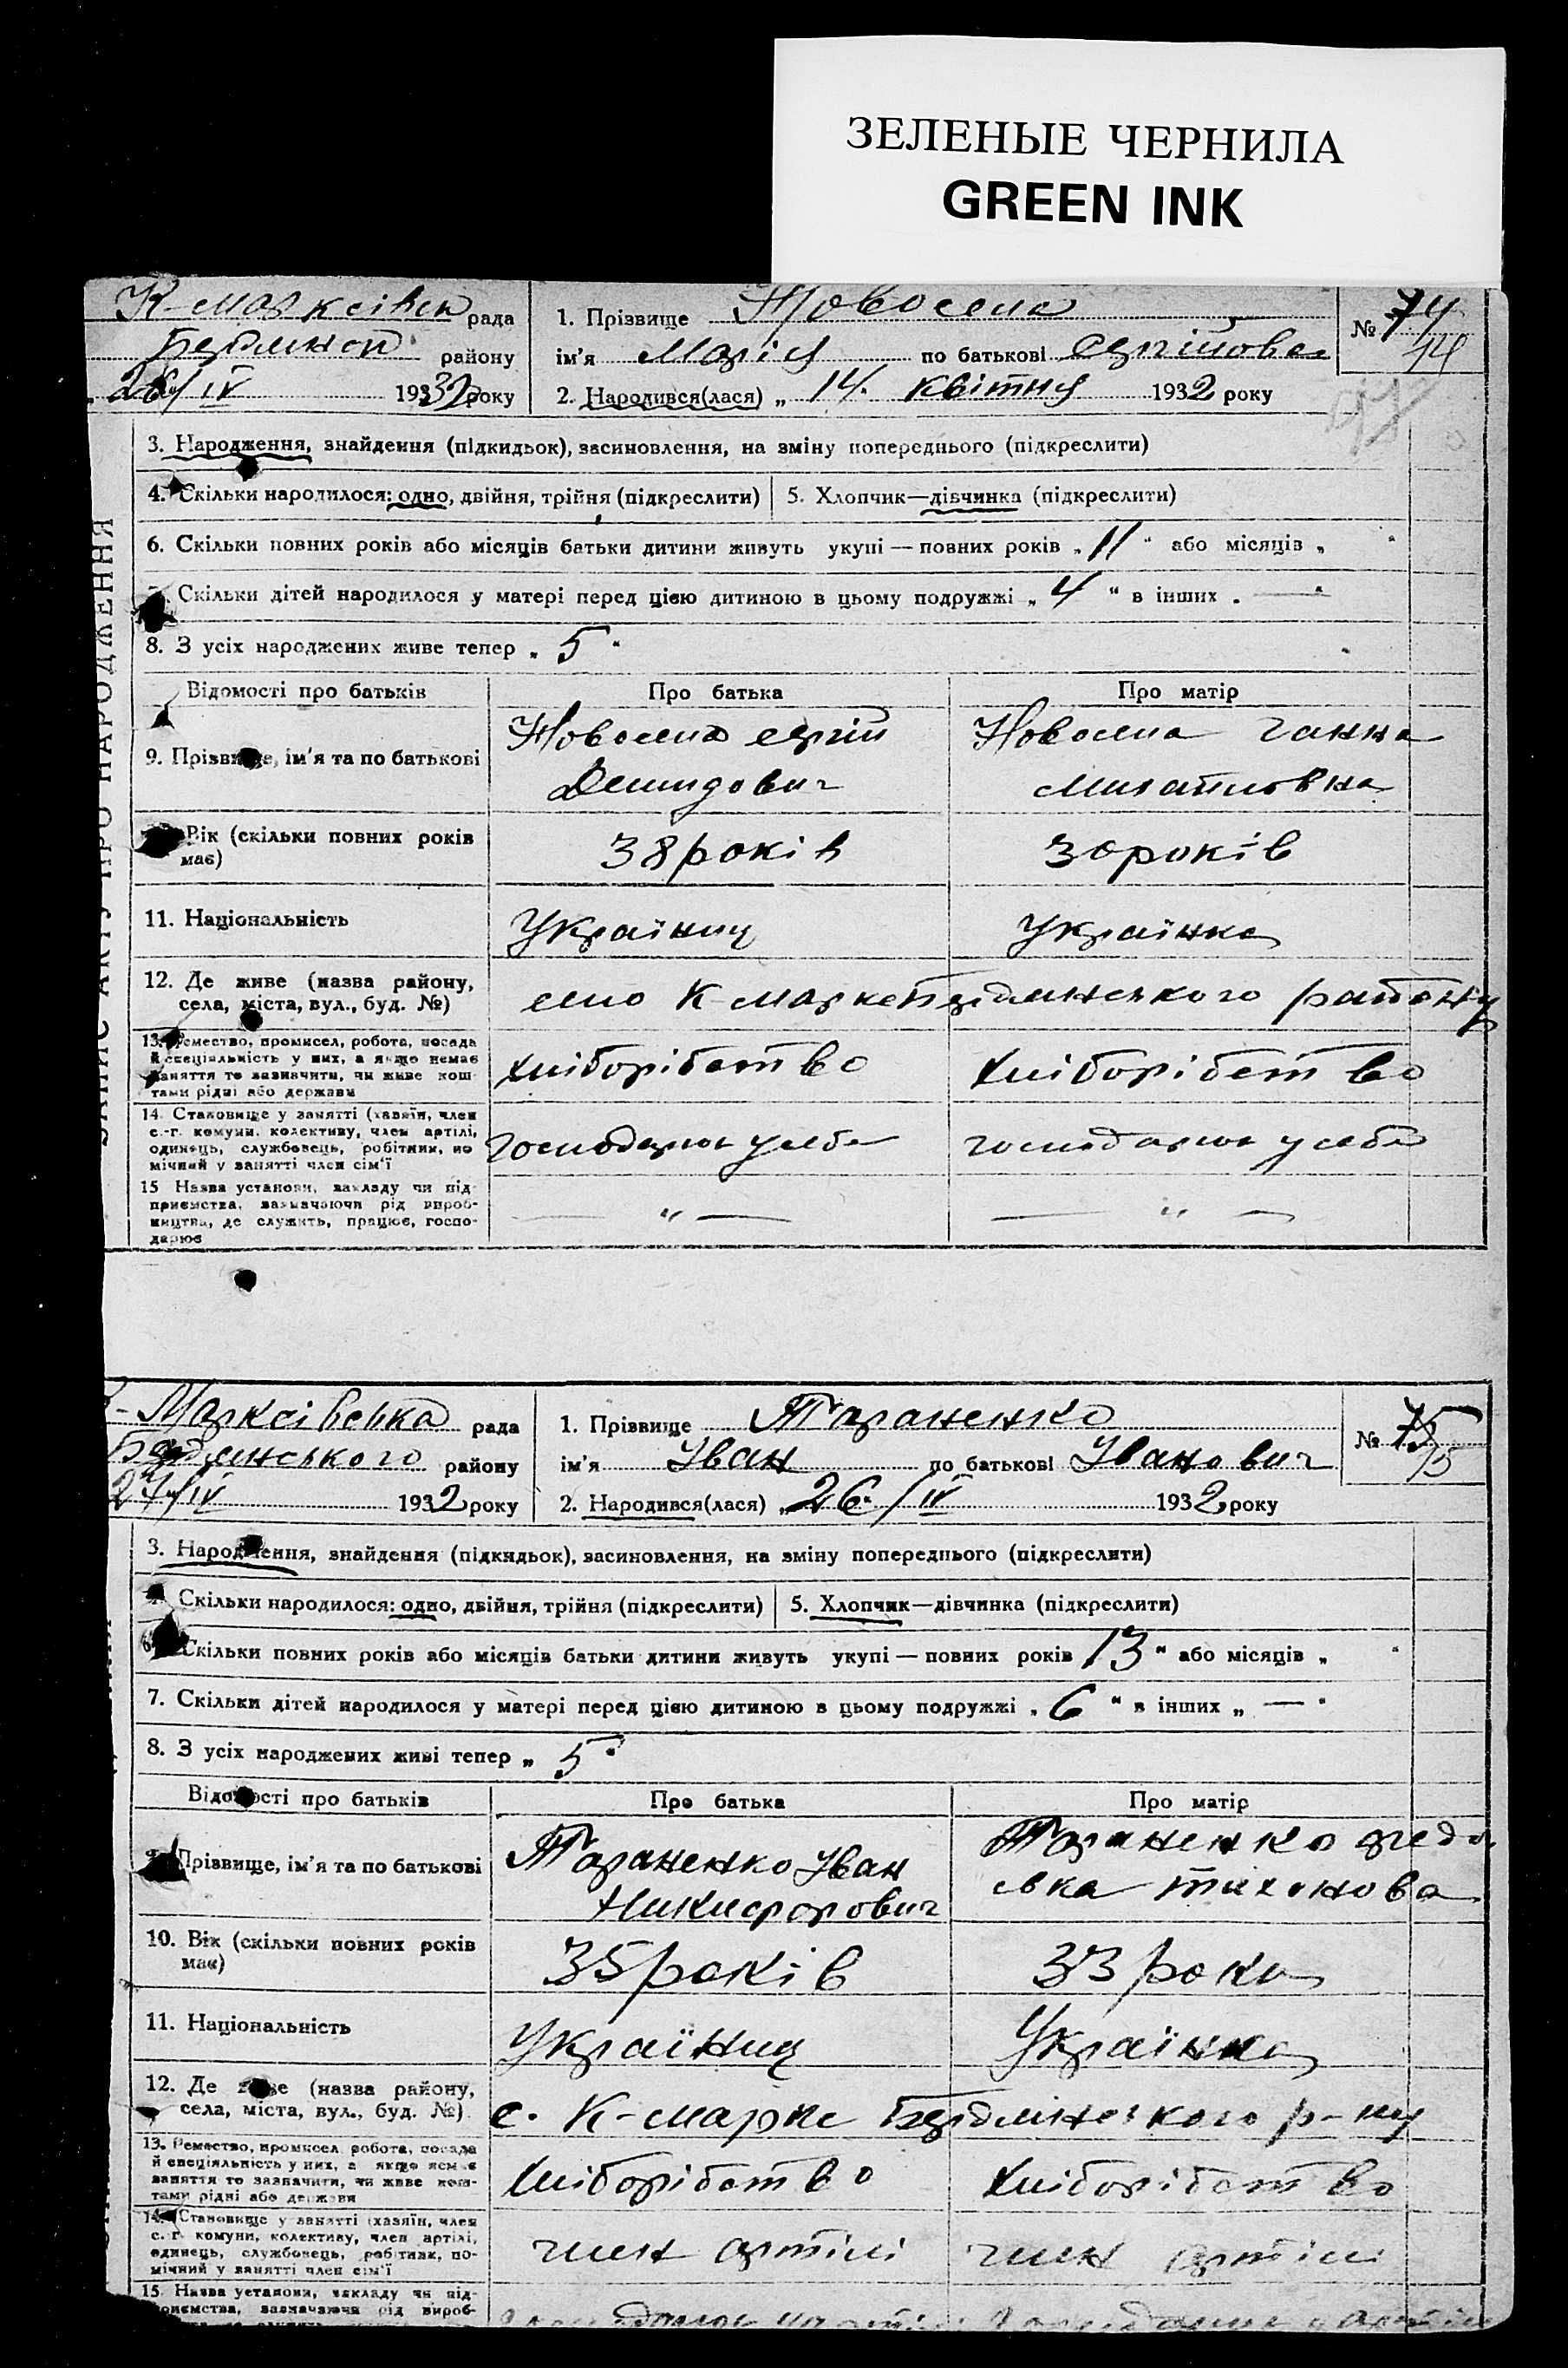 ЗЕЛЕНЫЕ ЧЕРНИЛА
GREEN INK
К-марксівск рада
району
26/IV 1932 року
1. Прізвище Новосела
ім'я Марія по батькові Сергійовна
2. Народився(лася) „ 14. квітня 1932 року
№ 74
14
3. Народження, знайдення (підкидьок), засиновлення, на зміну попереднього (підкреслити)
4. Скільки народилося: одно, двійня, трійня (підкреслити)
5. Хлопчик—дівчинка (підкреслити)
6. Скільки повних років або місяців батьки дитини живуть укупі — повних років „ 11 “ або місяців „ “
Скільки дітей народилося у матері перед цією дитиною в цьому подружжі „ 4 “ в інших „ — “
8. З усіх народжених живе тепер „ 5 “
Відомості про батьків
Про батька
Про матір
9. Прізвище, ім'я та по батькові
Новосела Сергій
Демидович
Новосела Ганна
Михайловна
Вік (скільки повних років
має)
38 років
30 років
11. Національність
Українец
Українка
12. Де живе (назва району,
села, міста, вул., буд. №)
село К-Маркс Бердянського району
13. Ремество, промисел, робота, посада
й спеціяльність у них, а якщо немає
заняття то зазначити, чи живе кош-
тами рідні або держави
хліборобство
хліборобство
14. Становище у занятті (хазяїн, член
с.-г. комуни, колективу, член артілі,
одинець, службовець, робітник, по
мічний у занятті член сім'ї
господарює у себе
господарює у себе
15 Назва установи, закладу чи під-
приємства, зазначаючи рід вироб-
ництва, де служить, працює, госпо-
дарює
— “ —
— “ —
ЗАПИС АКТУ ПРО НАРОДЖЕННЯ
-Марксівська рада
Бердянського району
27/IV 1932 року
1. Прізвище Тараненко
ім'я Іван по батькові Іванович
2. Народився(лася) „ 26./IV 1932 року
№ 75
15
3. Народження, знайдення (підкидьок), засиновлення, на зміну попереднього (підкреслити)
Скільки народилося: одно, двійня, трійня (підкреслити)
5. Хлопчик—дівчинка (підкреслити)
6. Скільки повних років або місяців батьки дитини живуть укупі — повних років 13 “ або місяців „ “
7. Скільки дітей народилося у матері перед цією дитиною в цьому подружжі „ 6 “ в інших „ — “
8. З усіх народжених живі тепер „ 5 “
Відомості про батьків
Про батька
Про матір
Прізвище, ім'я та по батькові
Тараненко Іван
Никифорович
Тараненко Федо
ська Тихонова
10. Вік (скільки повних років
має)
35 років
33 рока
11. Національність
Українец
Українка
12. Де живе (назва району,
села, міста, вул., буд. №)
с. К-маркс Бердянського р-ну
13. Ремество, промисел робота, посада
й спеціяльність у них, а якщо немає
заняття то зазначити, чи живе кош-
тами рідні або держави
хліборобство
хліборобство
14. Становище у занятті (хазяїн, член
с.-г. комуни, колективу, член артілі,
одинець, службовець, робітник, по-
мічний у занятті член сім'ї
член артілі
член артілі
15. Назва установи, закладу чи під-
приємства, зазначаючи рід вироб-